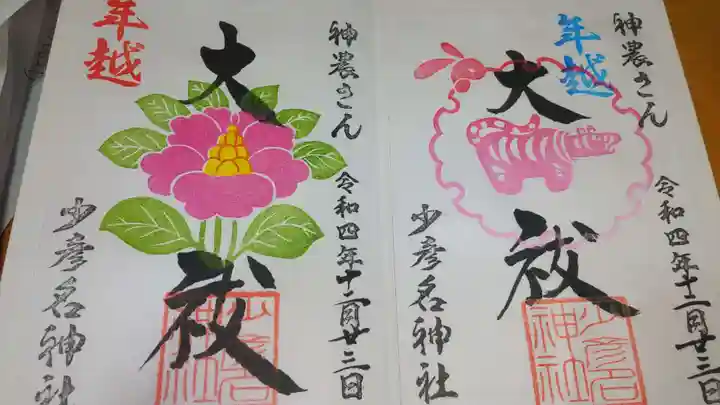 神農さん
年越
大祓
令和四年十二月廿三日
少彦名神社
少彦名
神社
神農さん
年越
大祓
令和四年十二月廿三日
少彦名神社
少彦名
神社